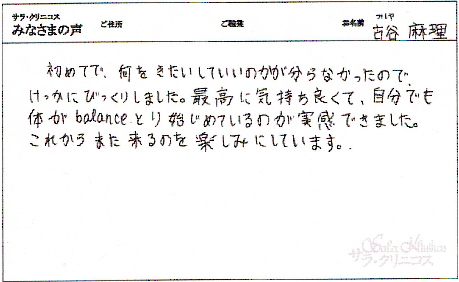 サラ・クリニコス
みなさまの声 ご住所 ご職業 お名前 フルヤ
古谷 麻理
初めてで、何をきたいしていいのかが分らなかったので、
けっかにびっくりしました。最高に気持ち良くて、自分でも
体がbalanceとり始じめているのが実感できました。
これからまた来るのを楽しみにしています。
Sala Klinikos
サラ・クリニコス